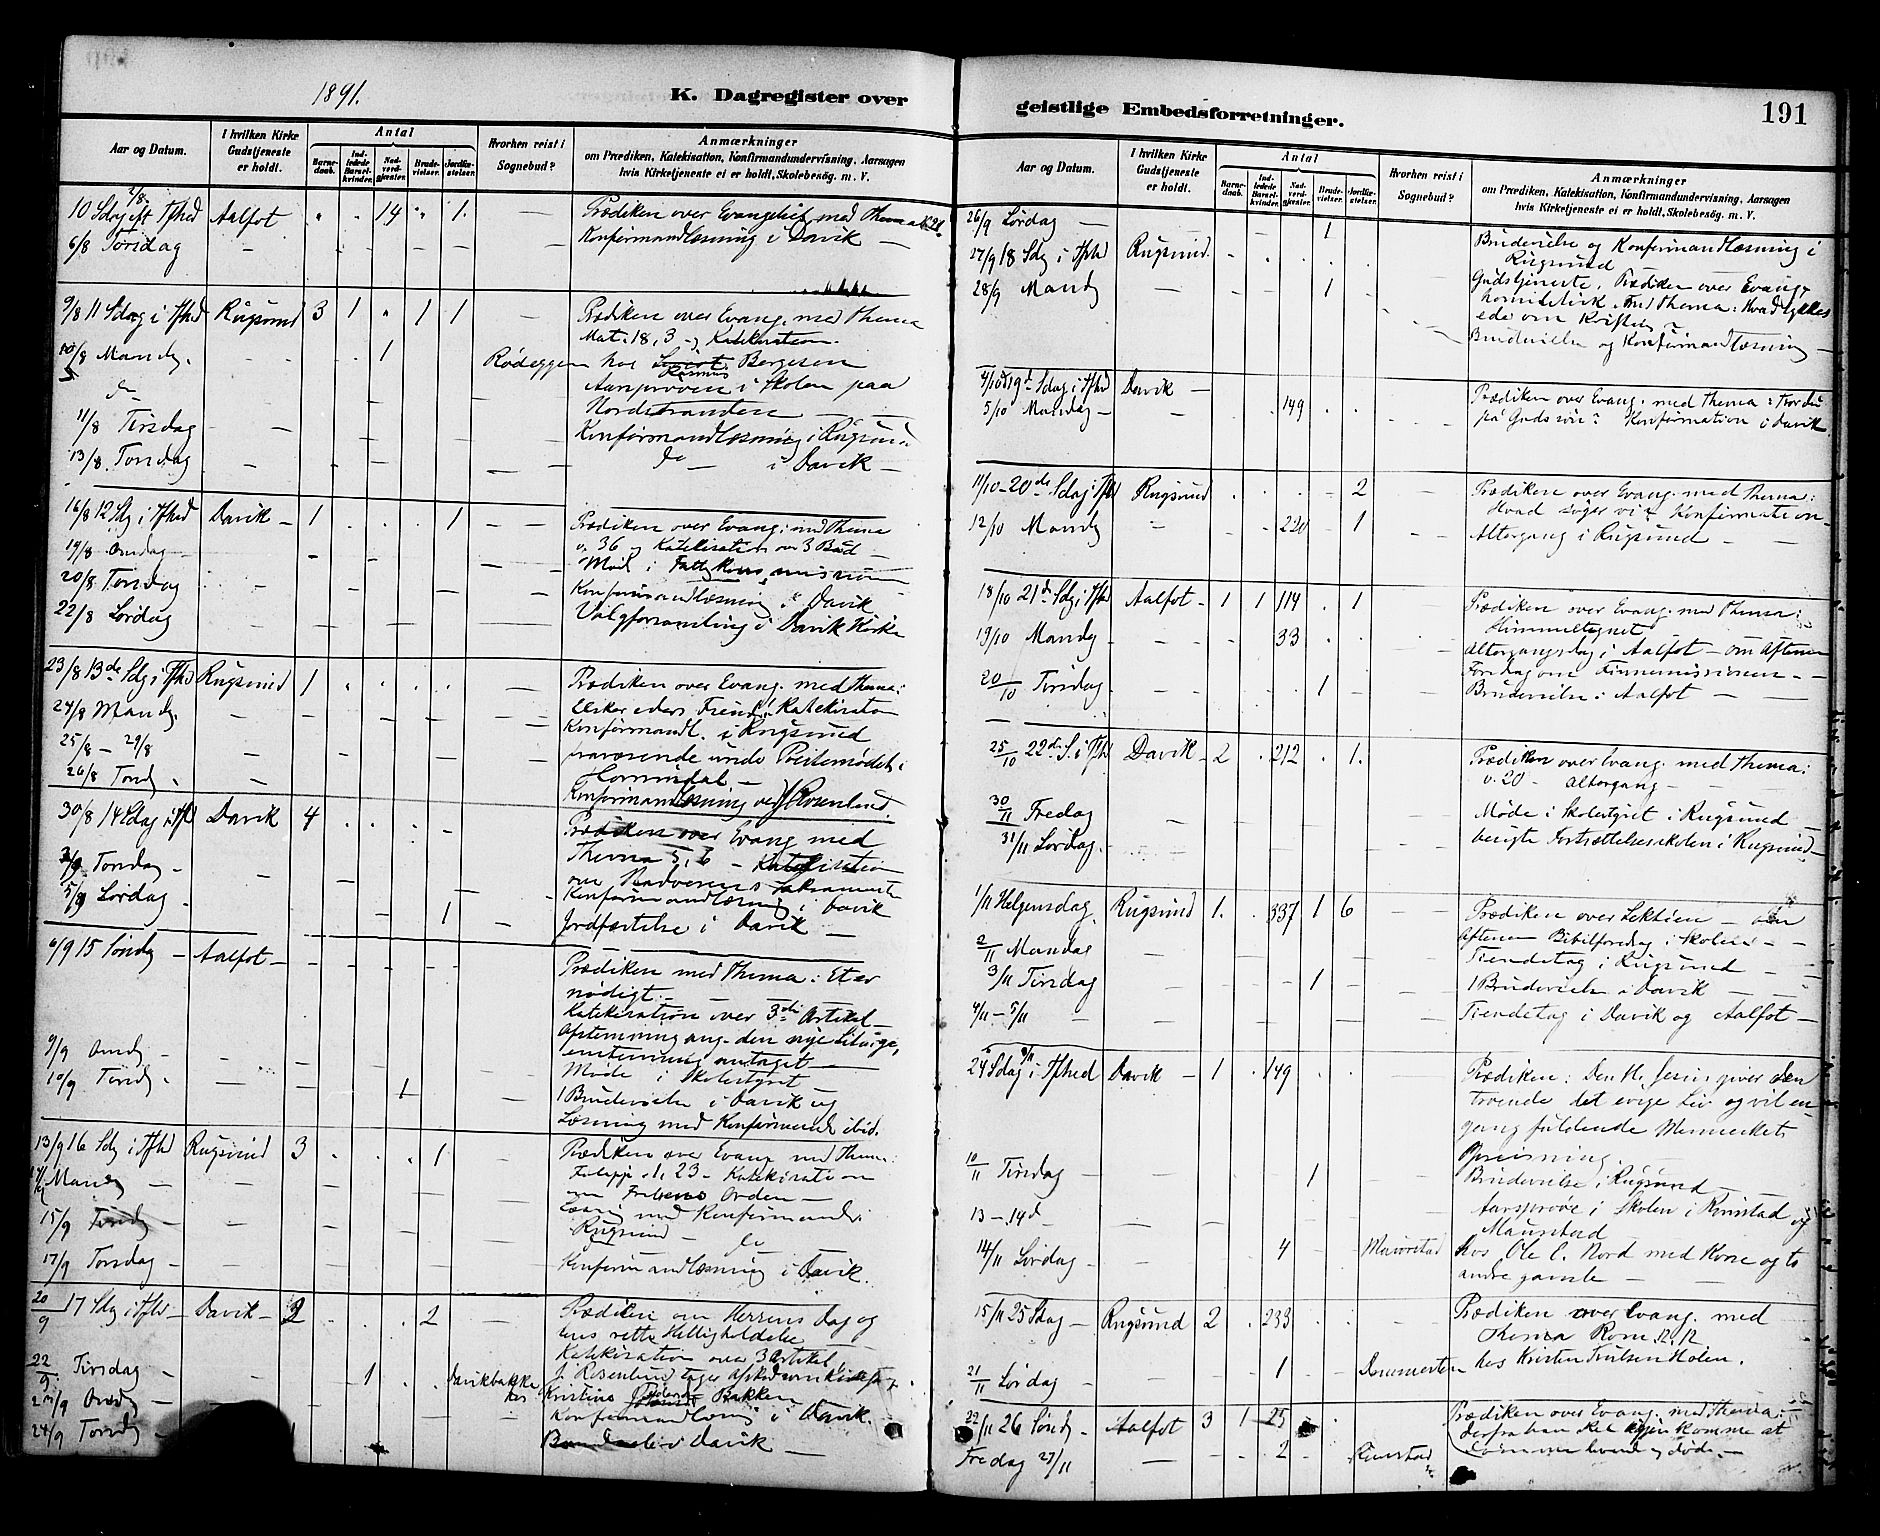 1891.
K. Dagregister over
Aar og Datum.
I hvilken Kirke Gudstjeneste er holdt.
Antal
Barnedaab.
Indledede Barselkvinder.
Nadverdgjester.
Brudevielser.
Jordfæstelser.
Hvorhen reist i Sognebud?
Anmærkninger
om Prædiken, Katekisation, Konfirmandundervisning, Aarsagen
hvis Kirketjeneste ei er holdt, Skolebesög. m. V.
2/8
10 Sdag eft Tfhed Aalfot " . 14 " 1. — Prædiken over Evangeliet med Thema
6/8 Torsdag — Konfirmandlæsning i Davik —
9/8 11 Sdag i Tfhed Rugsund 3 1 " 1 1 — Prædiken over Evang. med Thema
Mat. 18, 3 og Katekisation.
10/8 Mandg. 1 Rødeggen hos Rasmus Børgesen
do Aarsprøven i Skolen paa
Nordstranden —
11/8 Tirsdag Konfirmandlæsning i Rugsund
13/8 Torsdag do — i Davik —
16/8 12 Sdg i Tfhed Davik — 1 . . . 1 — Prædiken over Evang. med Thema
v. 36 og Katekisation over 3 Bud —
19/8 Onsdag — Møde i
20/8 Torsdag Konfirmandlæsning i Davik
22/8 Lørdag Valgforsamling i Davik Kirke
23/8 13de Sdg i Tfhd Rugsund 1 . . . . — Prædiken over Evang. med Thema:
Elsker eders Katekisation
24/8 Mandg. Konfirmandl. i Rugsund
25/8 — 29/8 fraværende under Prestemødet i
Hornindal —
26/8 Torsd. Konfirmandlæsning ved J. Rosenlund
30/8 14 Sdag i Tfhd Davik 4 . . . — Prædiken over Evang med
Thema 5, 6 — Katekisation
over Nadverens Sakramente
3/9 Torsdag — Konfirmandlæsning i Davik
5/9 Lørdag 1 Jordfæstelse i Davik —
6/9 15 Søndg — Aalfot — Prædiken med Thema: Et er
nødigt. —
Katekisation over 3die Artikel —
Afstemning ang. den nye Liturgi,
enstemmig antaget —
9/9 Onsdg — Møde i Skolestyret
10/9 Torsdg. 1 1 Brudevielse i Davik og
Læsning med Konfirmande ibid.
13/9 16 Sdg i Tfhd Rugsund 3 . . 1 — Prædiken over Evang med Thema:
Filipp. 1, 23 — Katekisation
om Frelsens Orden —
14/9 Mandg — Læsng med Konfirmander i
Rugsund —
15/9 Tirsdg — do
17/9 Torsdag — Konfirmandlæsning i Davik.
20/9 17 Sdg i Tfhd — Davik — 2 . . 2 — Prædiken om Herrens Dag og
dens rette Helligholdelse
Katekisation over 3 Artikel
22/9 Tirsdag — 1 . . Davikbakke J. Rosenlund tager
hos Kristine Bakken
Onsdg Konfirmandlæsng i Davik.
24/9 Torsdg i Davik —
geistlige Embedsforretninger.
191
Aar og Datum.
I hvilken Kirke Gudstjeneste er holdt.
Antal
Barnedaab.
Indledede Barselkvinder.
Nadverdgjester.
Brudevielser.
Jordfæstelser.
Hvorhen reist i Sognebud?
Anmærkninger
om Prædiken, Katekisation, Konfirmandundervisning, Aarsagen
hvis Kirketjeneste ei er holdt, Skolebesög. m. V.
26/9 Lørdag — 1 Brudevielse og Konfirmandlæsning i
Rugsund
27/9 18 Sdg i Tfhd Rugsund. Gudstjeneste. Prædiken over Evang.
med Thema: Hvad tykkes
eder om Kristus
28/9 Mandg — 1 Brudevielse og Konfirmandlæsning —
4/10 19de Sdag i Tfhd Davik — Prædiken over Evang. med Thema: Tror du
5/10 Mandag — 149 på Guds søn? Konfirmation i Davik
11/10 — 20de Sdag i Tfhd Rugsund . . . 2 — Prædiken over Evang. med Thema:
Hvad søger vi? Konfirmation —
12/10 Mandg " 220 1 Altergang i Rugsund —
18/10 21de Sdg i Tfhd Aalfot — 1 1 114 . 1 — Prædiken over Evang. med Thema:
Himmeltegnet
19/10 Mandg — 33 Altergangsdag i Aalfot — om Aftenen
Foredrag om Finnemissionen —
20/10 Tirsdag. 1 Brudevielse i Aalfot —
25/10 22de S. i Tfhd Davik — 2 . 212 . 1. Prædiken over Evang. med Thema:
v. 20 — Altergang —
30/11 Fredag — Møde i Skolestyret i Rugsund —
31/11 Lørdag. — besøgte Fortsættelsesskolen i Rugsund —
1/11 Helgensdag. Rugsund 1. . 337 1 6 — Prædiken over Lektien — om
Aftenen Bibelforedrag i Skolen —
2/11 Mandag Tiendetag i Rugsund —
3/11 Tirsdag 1 1 Brudevielse i Davik —
4/11 — 5/11 Tiendetag i Davik og Aalfot —
8/11
24 Sdag i Tfhed Davik — 1 . 149 . . Prædiken: Den H. Jesus giver den
troende det evige Liv og vil en-
gang fuldende Menneskets
Opreisning.
10/11 Tirsdag — 1 Brudevielse i Rugsund —
13 — 14d Aarsprøve i Skolen i Rimstad og
Maurstad
14/11 Lørdag — 4 Maurstad hos Ole E. Nord med Kone og to
andre gamle —
15/11 25 Sdag — Rugsund 2 . 233 Prædiken over Evang. med
Thema Rom. 12, 12
21/11 Lørdag — 1 hos Kristen Holen.
22/11 26 Søndg — Aalfot 3 1 25 Prædiken over Evang. med Thema:
derfra han skal igjen komme at
dømme levende og døde. —
Fredag 27/11 — 2 Rimstad